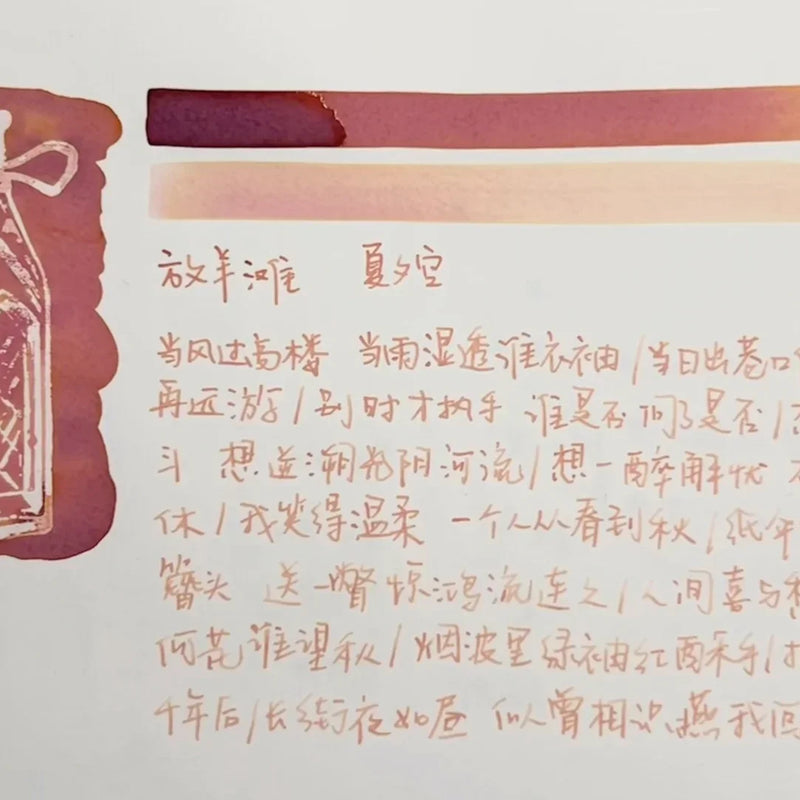 放羊滩 夏夕空
当风过高楼 当雨湿透谁衣袖/当日出巷口
再远游/别时才执手 谁是否问了是否/
斗 想逆溯光阴河流/想一醉解忧
休/我笑得温柔 一个人从春到秋/纸年
簪头 送一瞥惊鸿流连久/人间喜与
何花谁望秋/烟波里绿袖红酥手/
千年后/长街夜如昼 似人曾相识燕我回